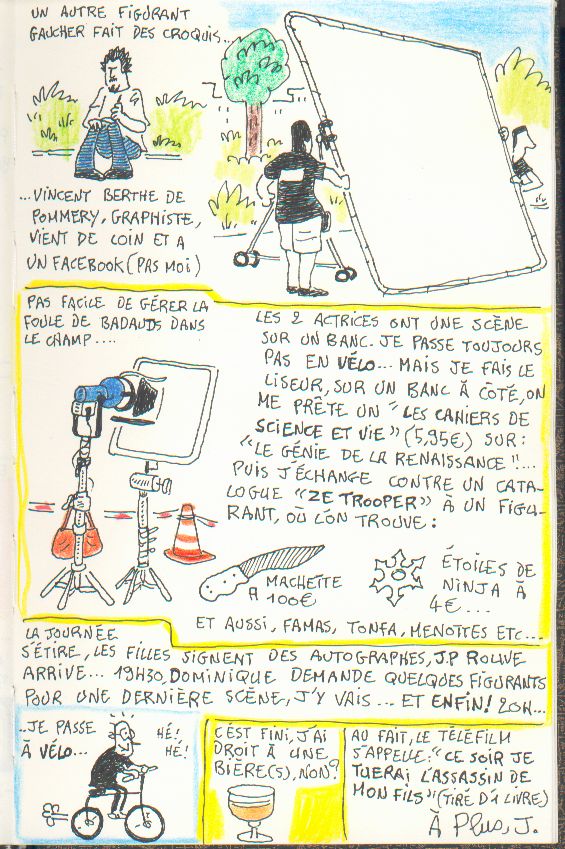 UN AUTRE FIGURANT
GAUCHER FAIT DES CROQUIS...
...VINCENT BERTHE DE
POMMERY, GRAPHISTE,
VIENT DE COIN ET A
UN FACEBOOK (PAS MOI)
PAS FACILE DE GÉRER LA
FOULE DE BADAUDS DANS
LE CHAMP....
LES 2 ACTRICES ONT UNE SCÈNE
SUR UN BANC. JE PASSE TOUJOURS
PAS EN VÉLO... MAIS JE FAIS LE
LISEUR, SUR UN BANC À CÔTÉ, ON
ME PRÊTE UN "LES CAHIERS DE
SCIENCE ET VIE" (5,95€) SUR:
"LE GÉNIE DE LA RENAISSANCE"!...
PUIS J'ÉCHANGE CONTRE UN CATA-
LOGUE "ZE TROOPER" À UN FIGU-
RANT, OÙ L'ON TROUVE:
MACHETTE
À 100€
ÉTOILES DE
NINJA À
4€...
ET AUSSI, FAMAS, TONFA, MENOTTES ETC...
LA JOURNÉE
S'ÉTIRE, LES FILLES SIGNENT DES AUTOGRAPHES, J.P ROUVE
ARRIVE... 19H30, DOMINIQUE DEMANDE QUELQUES FIGURANTS
POUR UNE DERNIÈRE SCÈNE, J'Y VAIS... ET ENFIN! 20H...
...JE PASSE
À VÉLO...
HÉ!
HÉ!
C'EST FINI, J'AI
DROIT À UNE
BIÈRE(S), NON?
AU FAIT, LE TÉLÉFILM
S'APPELLE: "CE SOIR JE
TUERAI L'ASSASSIN DE
MON FILS" (TIRÉ D'1 LIVRE)
À Plus, J.